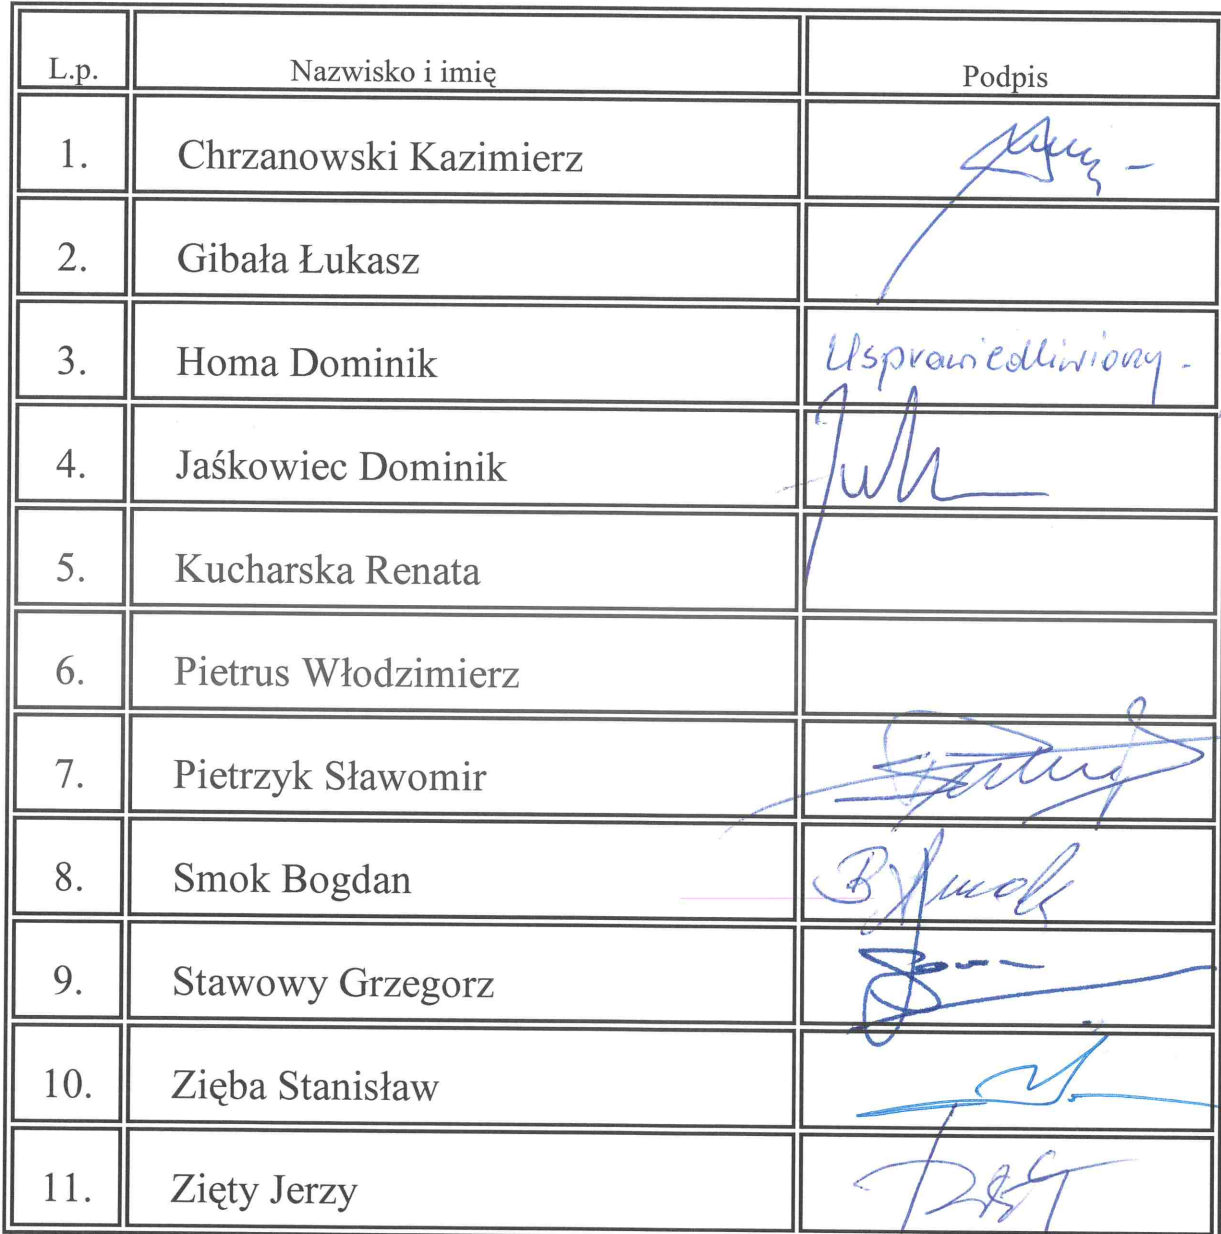 L.p. Nazwisko i imię Podpis
1. Chrzanowski Kazimierz
2. Gibała Łukasz
3. Homa Dominik Usprawiedliwiony -
4. Jaśkowiec Dominik
5. Kucharska Renata
6. Pietrus Włodzimierz
7. Pietrzyk Sławomir
8. Smok Bogdan B Smok
9. Stawowy Grzegorz
10. Zięba Stanisław
11. Zięty Jerzy